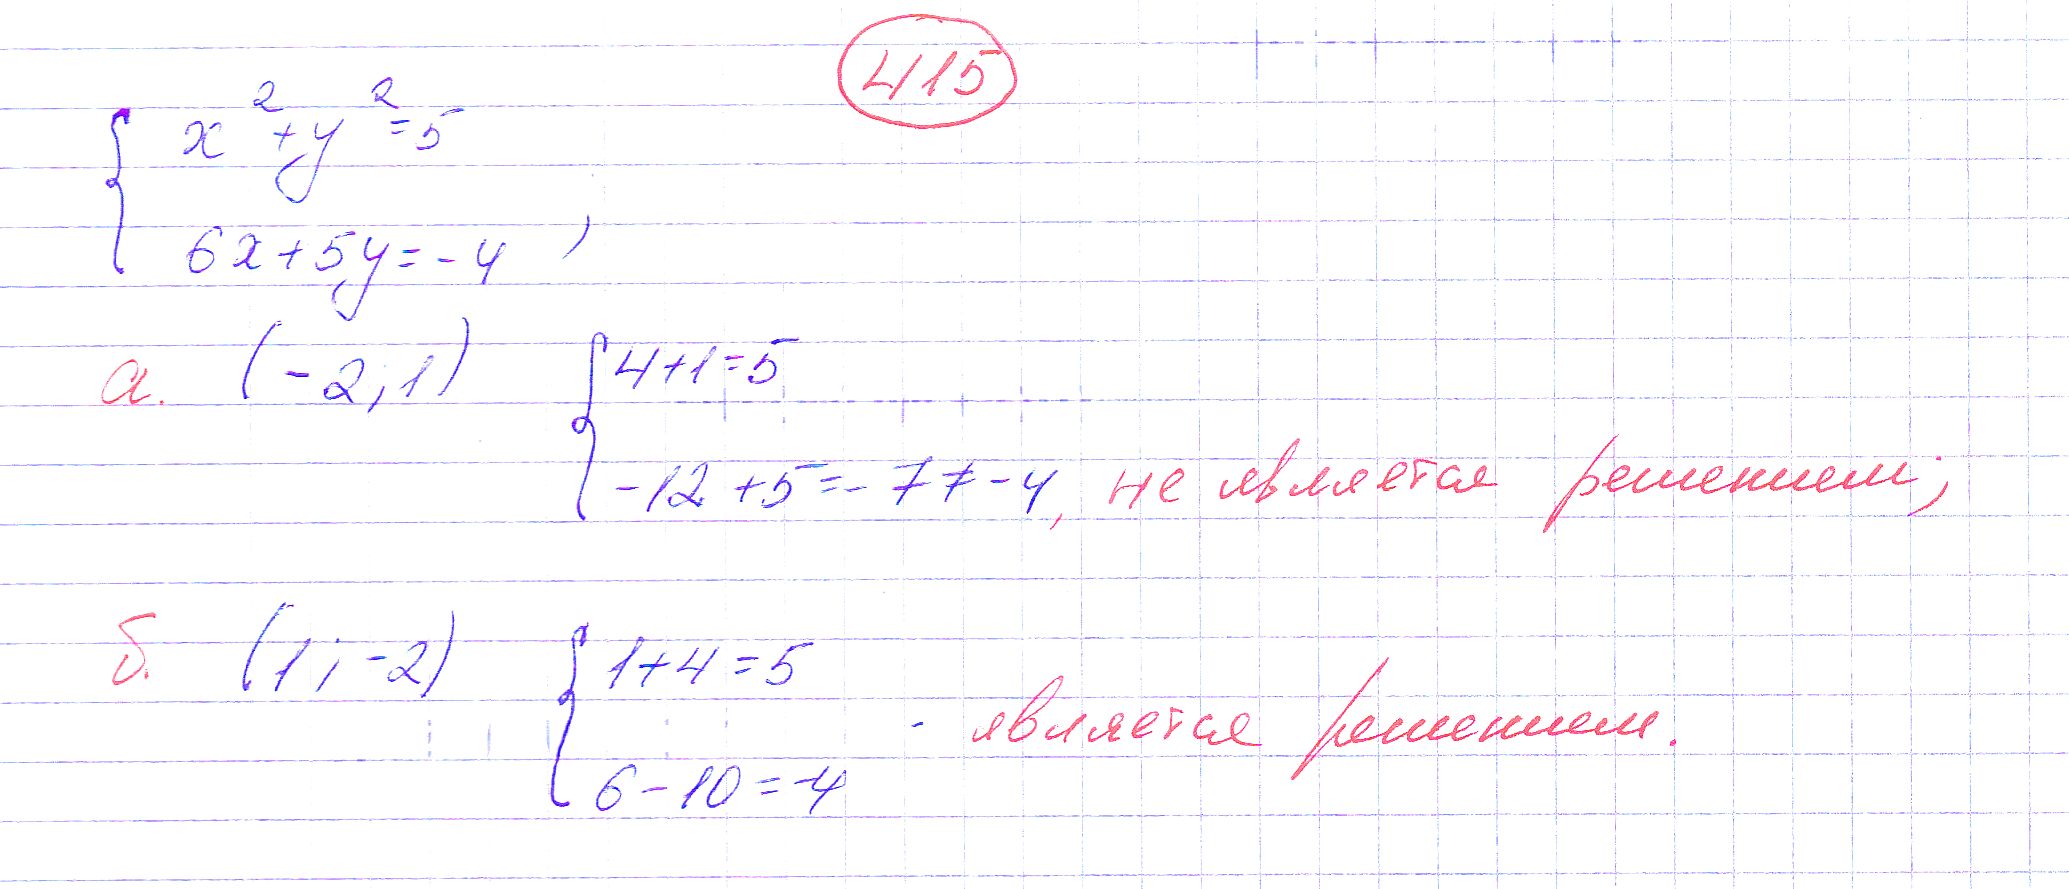 415
x²+y²=5
6x+5y=-4 ,
а. (-2;1) 4+1=5
-12+5=-7≠-4, не является решением;
б. (1;-2) 1+4=5
- является решением.
6-10=-4